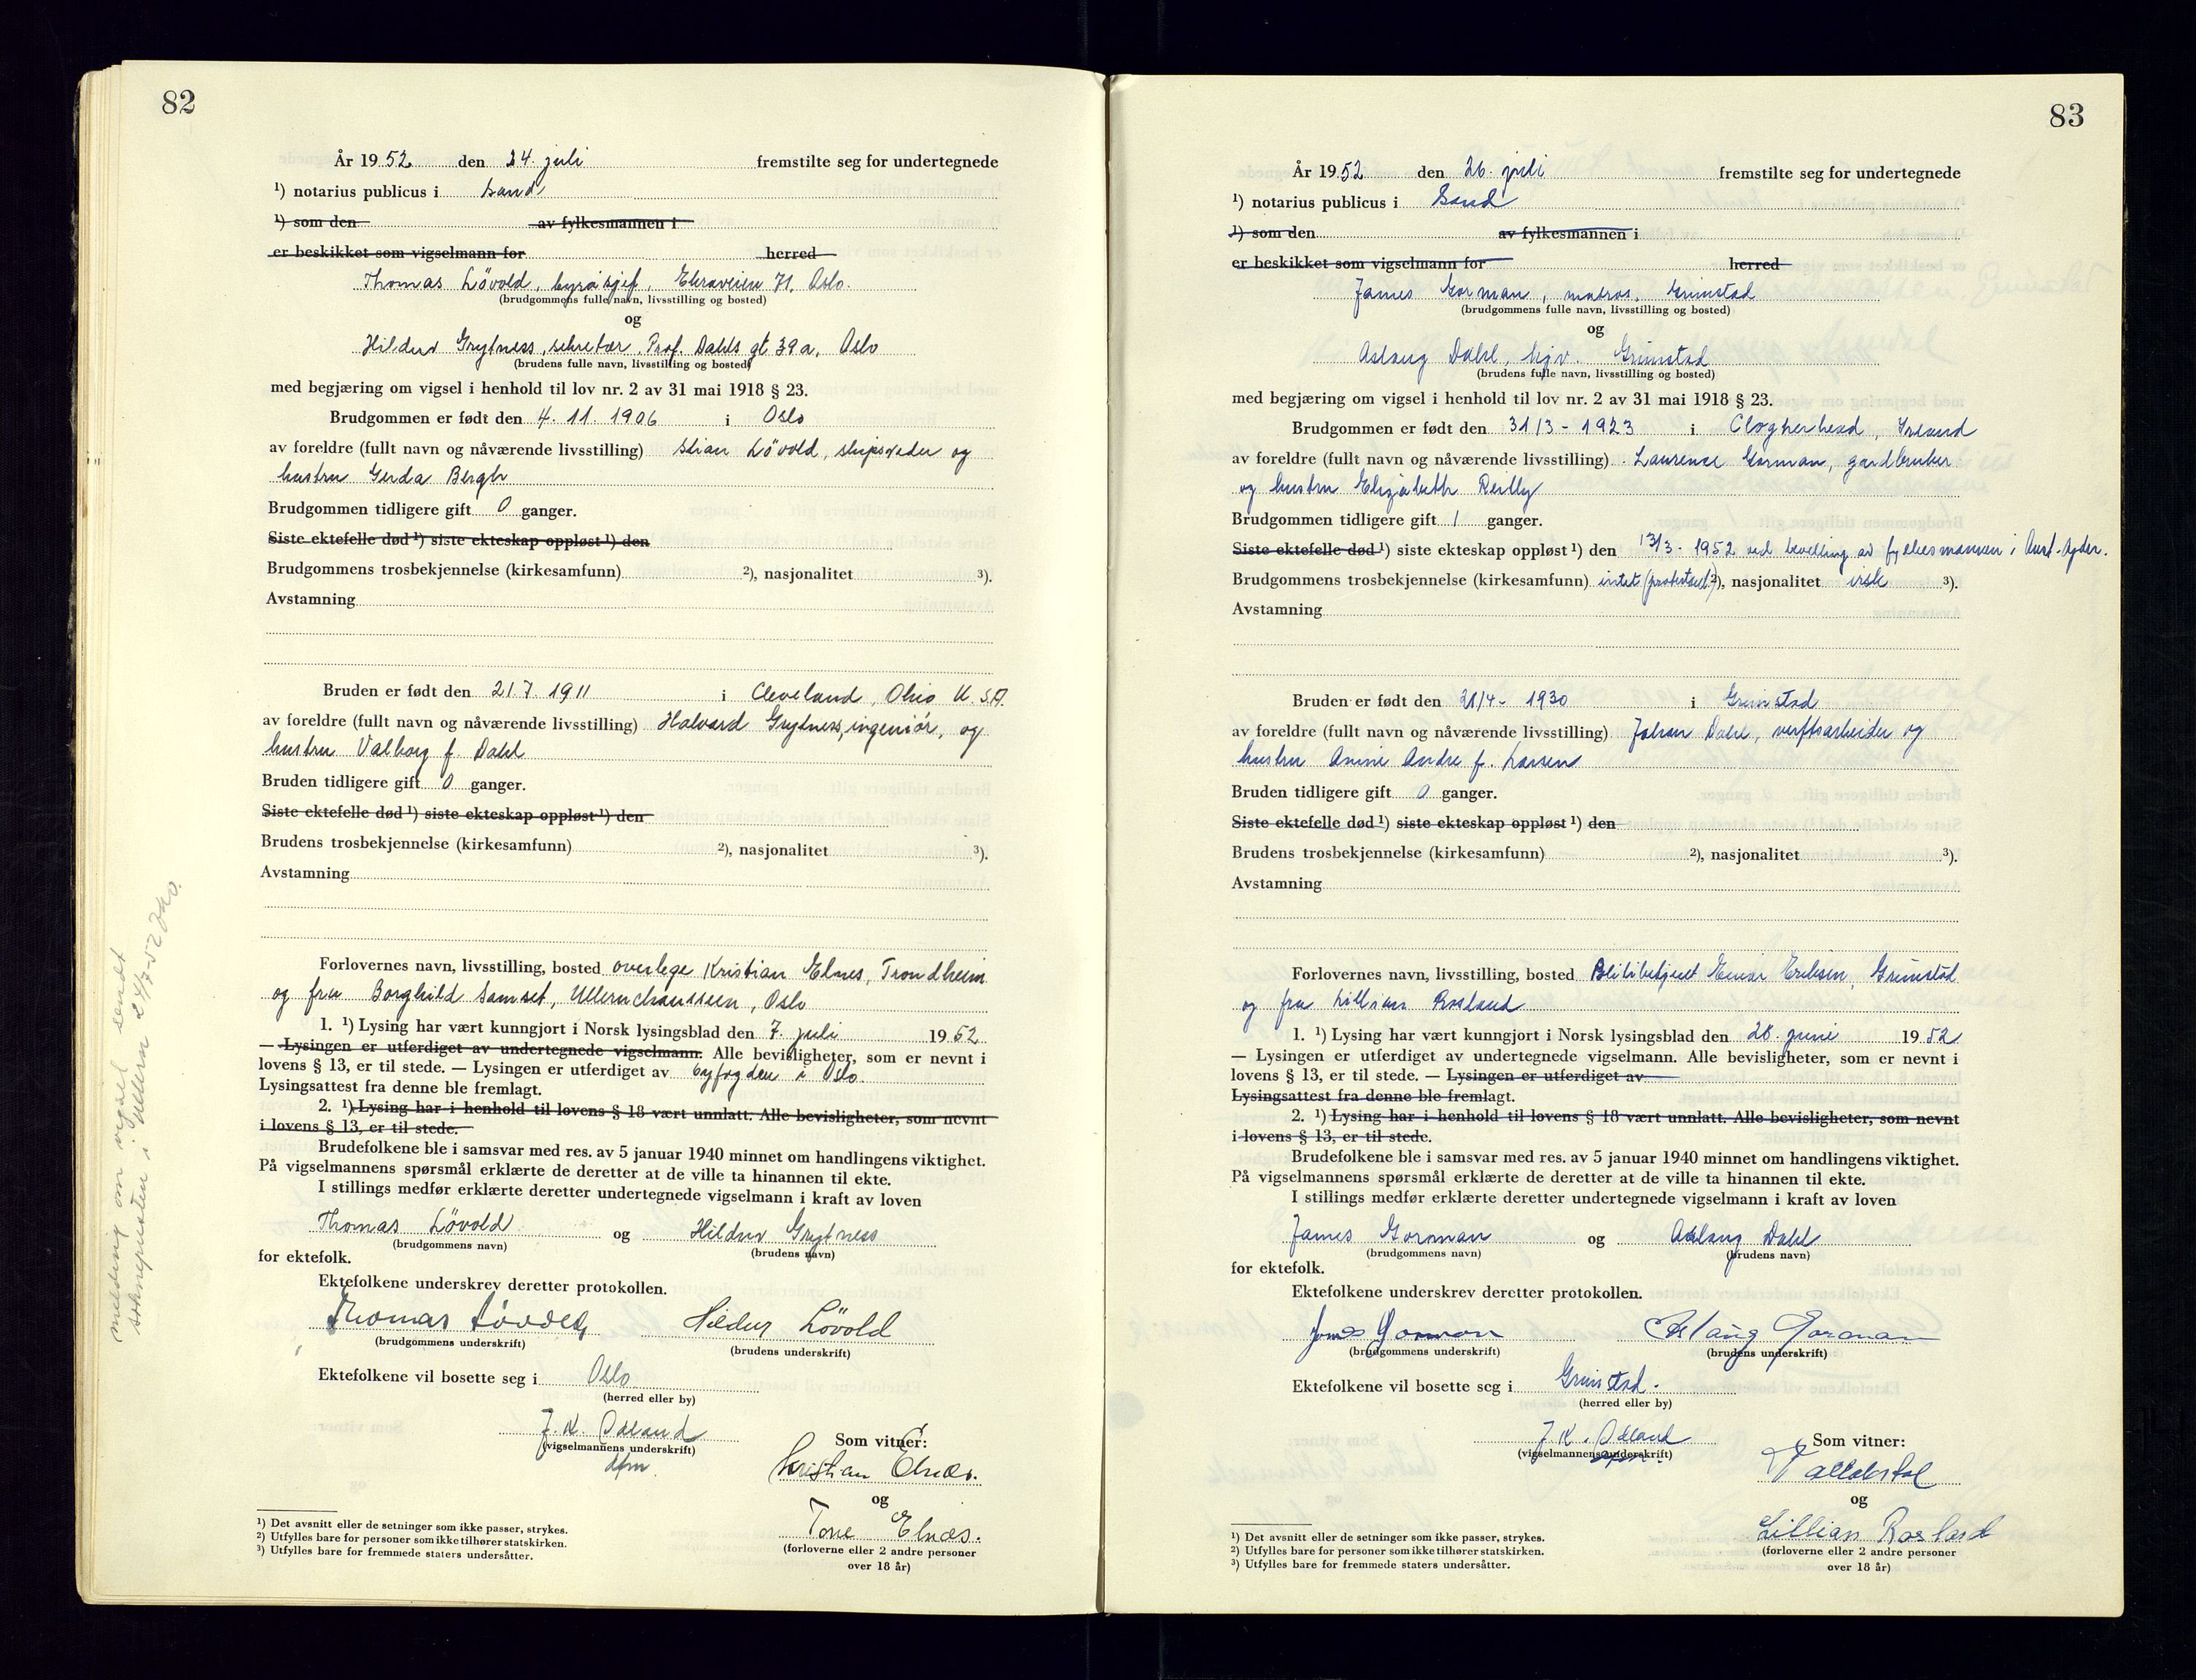 82
År 1952 den 24. juli fremstilte seg for undertegnede
¹) notarius publicus i Sand
¹) som den av fylkesmannen i
er beskikket som vigselmann for herred
Thomas Lövold, byråsjef, Ekraveien 71, Oslo.
(brudgommens fulle navn, livsstilling og bosted)
og
Hildur Grytness, sekretær, Prof. Dahls gt 39a, Oslo
(brudens fulle navn, livsstilling og bosted)
med begjæring om vigsel i henhold til lov nr. 2 av 31 mai 1918 § 23.
Brudgommen er født den 4. 11. 1906 i Oslo
av foreldre (fullt navn og nåværende livsstilling) Stian Lövold, skipsreder og
hustru Gerda Bergh
Brudgommen tidligere gift 0 ganger.
Siste ektefelle død ¹) siste ekteskap oppløst ¹) den
Brudgommens trosbekjennelse (kirkesamfunn) ²), nasjonalitet ³).
Avstamning
Bruden er født den 21. 7. 1911 i Cleveland, Ohio U.S.A.
av foreldre (fullt navn og nåværende livsstilling) Halvard Grytness, ingeniör, og
hustru Valborg f. Dahl
Bruden tidligere gift 0 ganger.
Siste ektefelle død ¹) siste ekteskap oppløst ¹) den
Brudens trosbekjennelse (kirkesamfunn) ²), nasjonalitet ³).
Avstamning
Forlovernes navn, livsstilling, bosted overlege Kristian Elnes, Trondheim
og fru Borghild Samset, Ullernchausseen, Oslo
1. ¹) Lysing har vært kunngjort i Norsk lysingsblad den 7. juli 1952
— Lysingen er utferdiget av undertegnede vigselmann. Alle bevisligheter, som er nevnt i
lovens § 13, er til stede. — Lysingen er utferdiget av byfogden i Oslo.
Lysingsattest fra denne ble fremlagt.
2. ¹) Lysing har i henhold til lovens § 18 vært unnlatt. Alle bevisligheter, som nevnt
i lovens § 13, er til stede.
Brudefolkene ble i samsvar med res. av 5 januar 1940 minnet om handlingens viktighet.
På vigselmannens spørsmål erklærte de deretter at de ville ta hinannen til ekte.
I stillings medfør erklærte deretter undertegnede vigselmann i kraft av loven
Thomas Lövold og Hildur Grytness
(brudgommens navn) (brudens navn)
for ektefolk.
Ektefolkene underskrev deretter protokollen.
Thomas Lövold Hildur Lövold
(brudgommens underskrift) (brudens underskrift)
Ektefolkene vil bosette seg i Oslo
(herred eller by)
J. K. Ødland
(vigselmannens underskrift)
dfm.
Som vitner:
Kristian Elnæs.
og
Tove Elnæs.
(forloverne eller 2 andre personer
over 18 år)
¹) Det avsnitt eller de setninger som ikke passer, strykes.
²) Utfylles bare for personer som ikke tilhører statskirken.
³) Utfylles bare for fremmede staters undersåtter.
melding om vigsel sendt
soknepresten i Ullern 24/7-52
83
År 1952 den 26. juli fremstilte seg for undertegnede
¹) notarius publicus i Sand
¹) som den av fylkesmannen i
er beskikket som vigselmann for herred
James Gorman, matros, Grimstad
(brudgommens fulle navn, livsstilling og bosted)
og
Aslaug Dahl, hjv. Grimstad
(brudens fulle navn, livsstilling og bosted)
med begjæring om vigsel i henhold til lov nr. 2 av 31 mai 1918 § 23.
Brudgommen er født den 31/3 - 1923 i Clogherhead, Irland
av foreldre (fullt navn og nåværende livsstilling) Laurence Gorman, gardbruker
og hustru Elizabeth Reilly
Brudgommen tidligere gift 1 ganger.
Siste ektefelle død ¹) siste ekteskap oppløst ¹) den 13/3 - 1952 ved bevilling av fylkesmannen i Aust-Agder.
Brudgommens trosbekjennelse (kirkesamfunn) intet (protestant) ²), nasjonalitet irsk ³).
Avstamning
Bruden er født den 28/4 - 1930 i Grimstad
av foreldre (fullt navn og nåværende livsstilling) Johan Dahl, verftsarbeider og
hustru Anine Andre f. Larsen
Bruden tidligere gift 0 ganger.
Siste ektefelle død ¹) siste ekteskap oppløst ¹) den
Brudens trosbekjennelse (kirkesamfunn) ²), nasjonalitet ³).
Avstamning
Forlovernes navn, livsstilling, bosted Politibetjent Einar Eriksen, Grimstad
og fru Lillian Rosland
1. ¹) Lysing har vært kunngjort i Norsk lysingsblad den 28. juni 1952
— Lysingen er utferdiget av undertegnede vigselmann. Alle bevisligheter, som er nevnt i
lovens § 13, er til stede. — Lysingen er utferdiget av
Lysingsattest fra denne ble fremlagt.
2. ¹) Lysing har i henhold til lovens § 18 vært unnlatt. Alle bevisligheter, som nevnt
i lovens § 13, er til stede.
Brudefolkene ble i samsvar med res. av 5 januar 1940 minnet om handlingens viktighet.
På vigselmannens spørsmål erklærte de deretter at de ville ta hinannen til ekte.
I stillings medfør erklærte deretter undertegnede vigselmann i kraft av loven
James Gorman og Aslaug Dahl
(brudgommens navn) (brudens navn)
for ektefolk.
Ektefolkene underskrev deretter protokollen.
James Gorman Aslaug Gorman
(brudgommens underskrift) (brudens underskrift)
Ektefolkene vil bosette seg i Grimstad.
(herred eller by)
J. K. Ødland
(vigselmannens underskrift)
Som vitner:
og
Lillian Rosland
(forloverne eller 2 andre personer
over 18 år)
¹) Det avsnitt eller de setninger som ikke passer, strykes.
²) Utfylles bare for personer som ikke tilhører statskirken.
³) Utfylles bare for fremmede staters undersåtter.